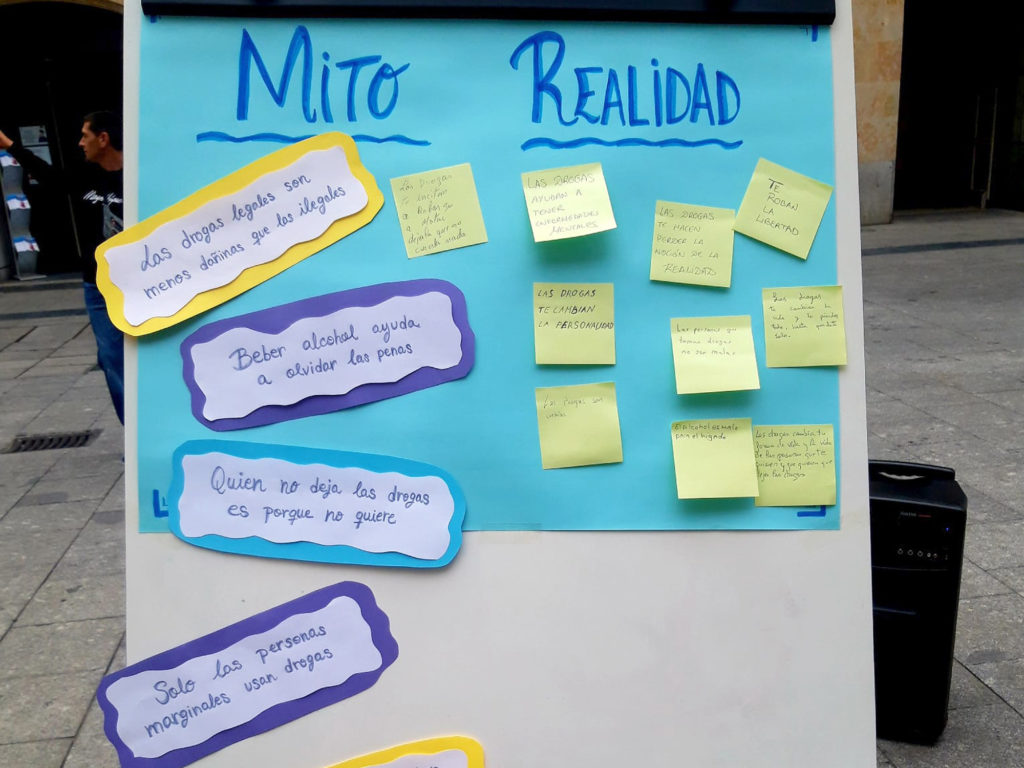 MITO
REALIDAD
Las drogas legales son
menos dañinas que las ilegales
Beber alcohol ayuda
a olvidar las penas
Quien no deja las drogas
es porque no quiere
Solo las personas
marginales usan drogas
Las Drogas
te incitan
a Robar
a
que no
nada
LAS DROGAS
AYUDAN A
TENER
ENFERMEDADES
MENTALES
LAS DROGAS
TE HACEN
PERDER LA
NOCIÓN DE LA
REALIDAD
TE
ROBAN
LA
LIBERTAD
LAS DROGAS
TE CAMBIAN
LA PERSONALIDAD
Las personas que
toman drogas
no son malas
Las drogas
te cambian la
vida y lo pierdes
todo, hasta quedarte
solo.
Las Drogas son
El alcohol es malo
para el hígado
Las drogas cambia tu
forma de vida y la vida
de las personas que te
quieren y que quieren que
dejes las drogas